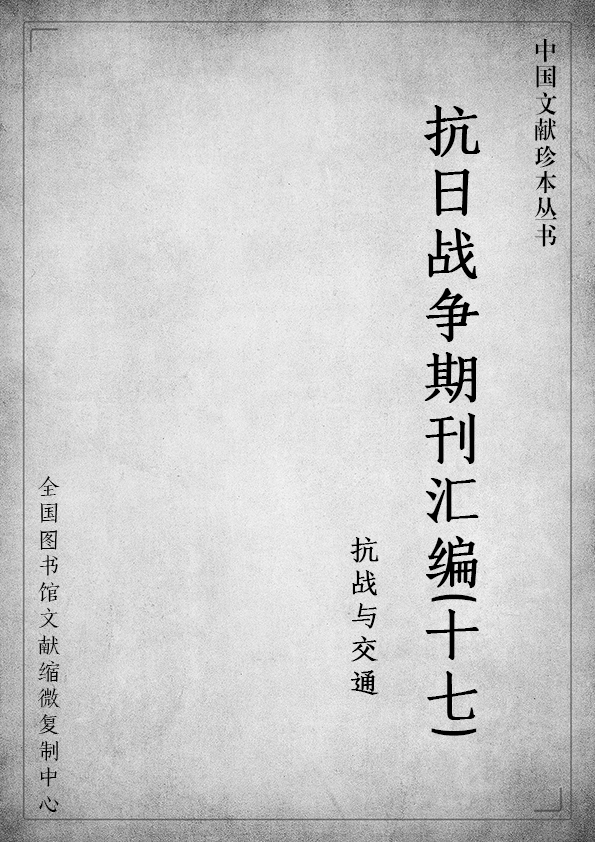 中国文献珍本丛书
抗日战争期刊汇编(十七)
抗战与交通
全国图书馆文献缩微复制中心